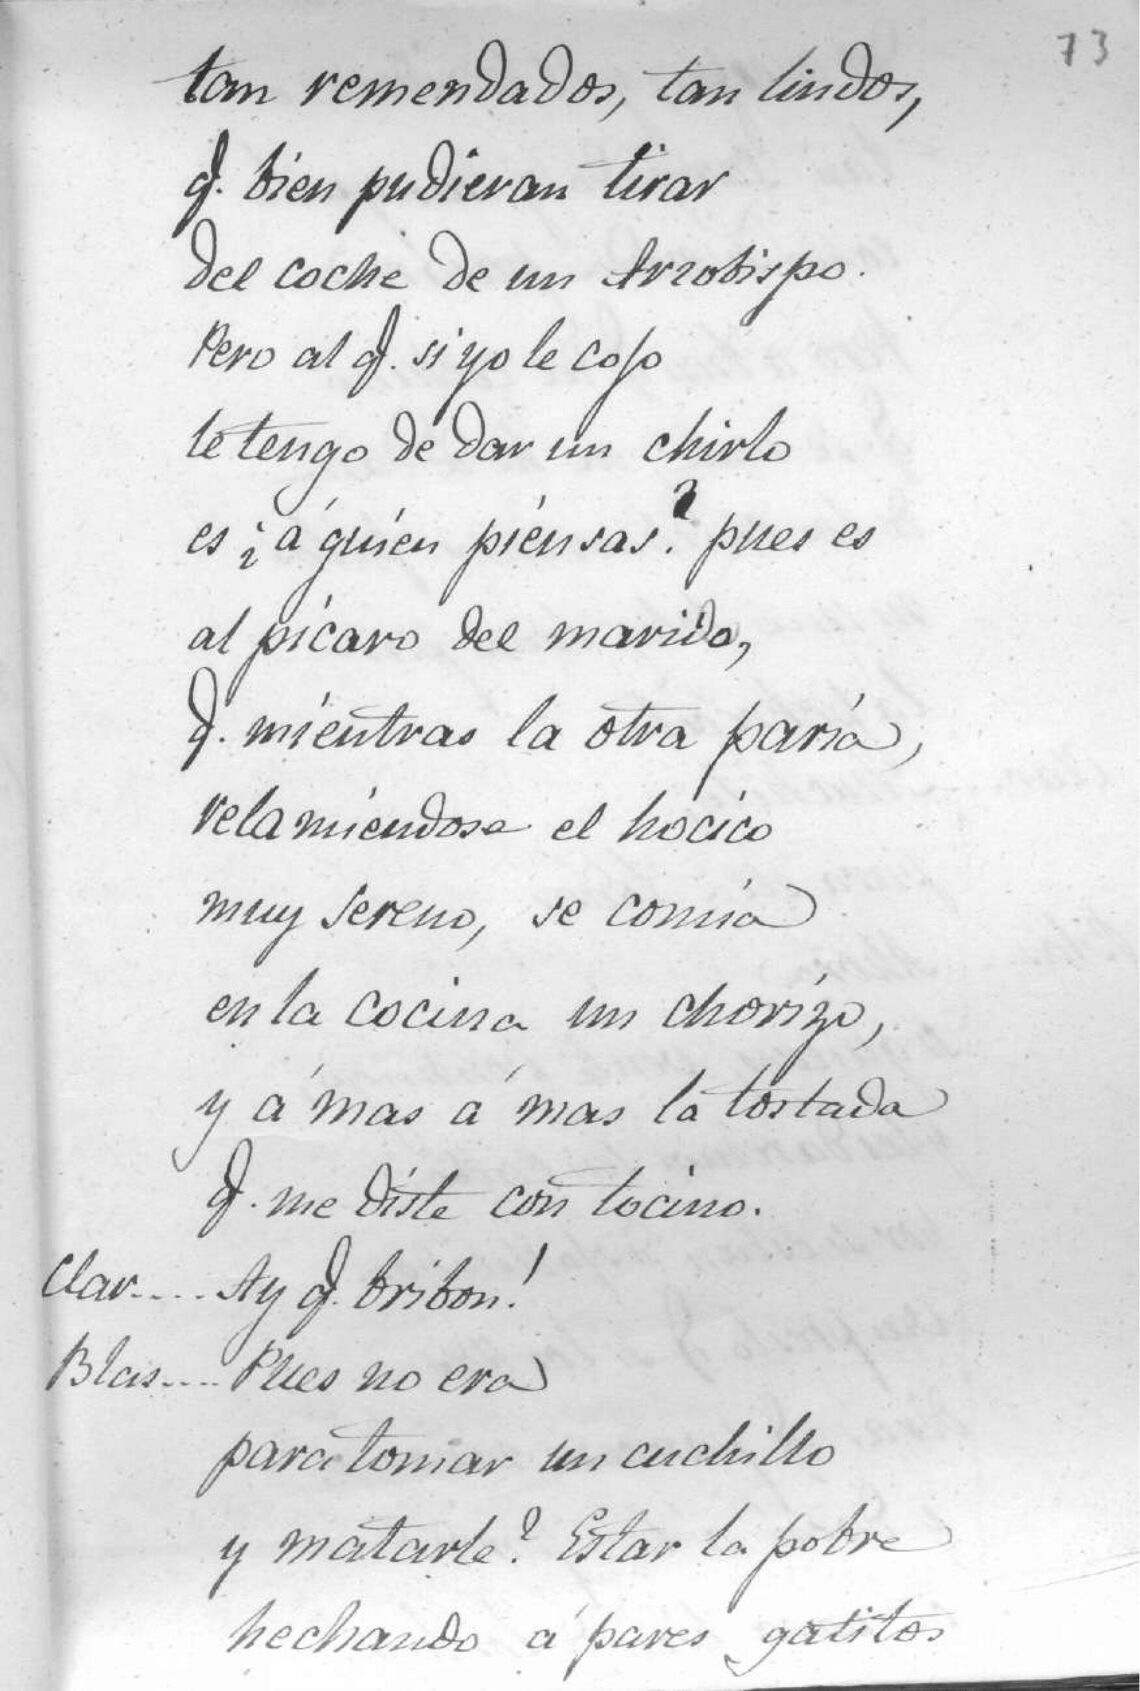 73
tan remendados, tan lindos,
q. bien pudieran tirar
del coche de un Arzobispo.
Pero al q. si yo le cojo
le tengo de dar un chirlo
es ¿á quien piensas? pues es
al picaro del marido,
q. mientras la otra paría,
relamiendose el hocico
muy sereno, se comía
en la cocina un chorizo,
y á mas á mas la tostada
q. me diste con tocino.
Clar.... Ay q. bribon!
Blas.... Pues no era
para tomar un cuchillo
y matarle? Estar la pobre
hechando á pares gatitos